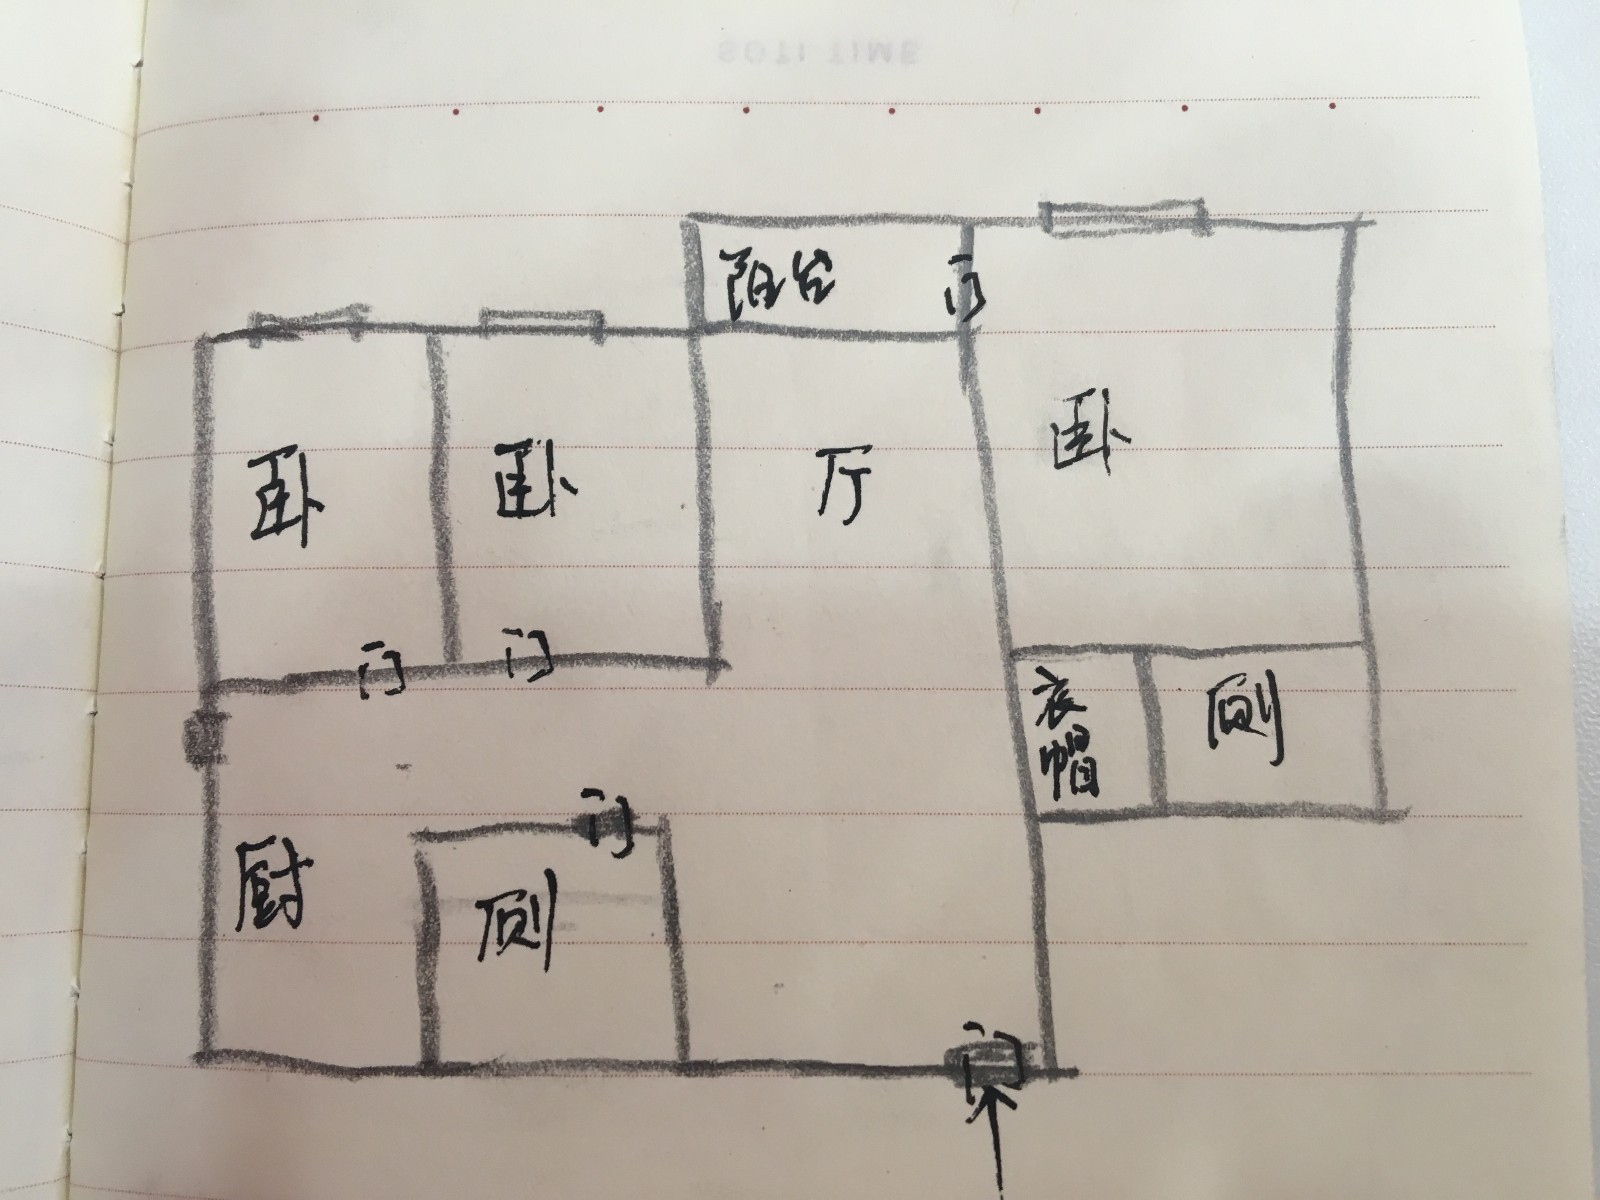 SOTI TIME
阳台
门
卧
卧
厅
卧
门
门
衣
帽
厕
门
厨
厕
门